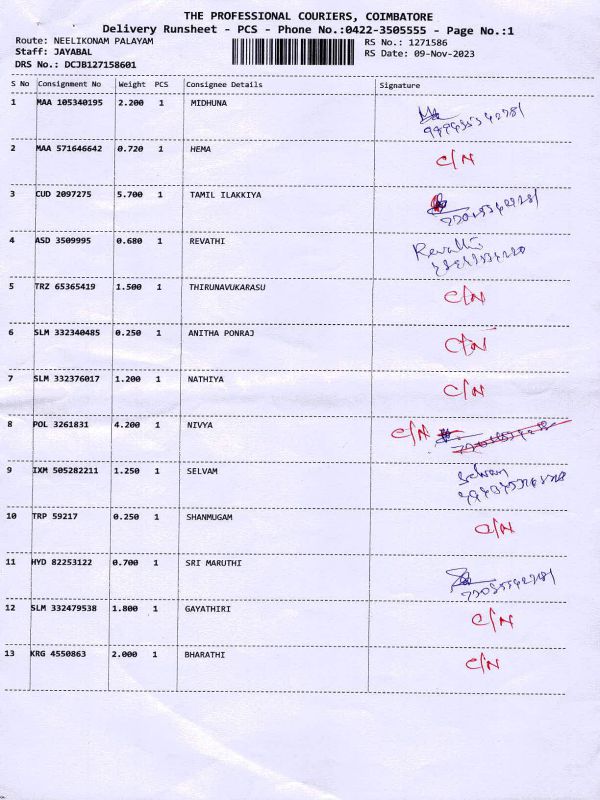 THE PROFESSIONAL COURIERS, COIMBATORE
Delivery Runsheet - PCS - Phone No.:0422-3505555 - Page No.:1
Route: NEELIKONAM PALAYAM RS No.: 1271586
Staff: JAYABAL RS Date: 09-Nov-2023
DRS No.: DCJB127158601
S No Consignment No Weight PCS Consignee Details Signature
1 MAA 105340195 2.200 1 MIDHUNA
2 MAA 571646642 0.720 1 HEMA C/N
3 CUD 2097275 5.700 1 TAMIL ILAKKIYA
4 ASD 3509995 0.680 1 REVATHI Revathi
5 TRZ 65365419 1.500 1 THIRUNAVUKARASU C/N
6 SLM 332340485 0.250 1 ANITHA PONRAJ C/N
7 SLM 332376017 1.200 1 NATHIYA C/N
8 POL 3261831 4.200 1 NIVYA C/N
9 IXM 505282211 1.250 1 SELVAM Selvam
10 TRP 59217 0.250 1 SHANMUGAM C/N
11 HYD 82253122 0.700 1 SRI MARUTHI
12 SLM 332479538 1.800 1 GAYATHIRI C/N
13 KRG 4550863 2.000 1 BHARATHI C/N